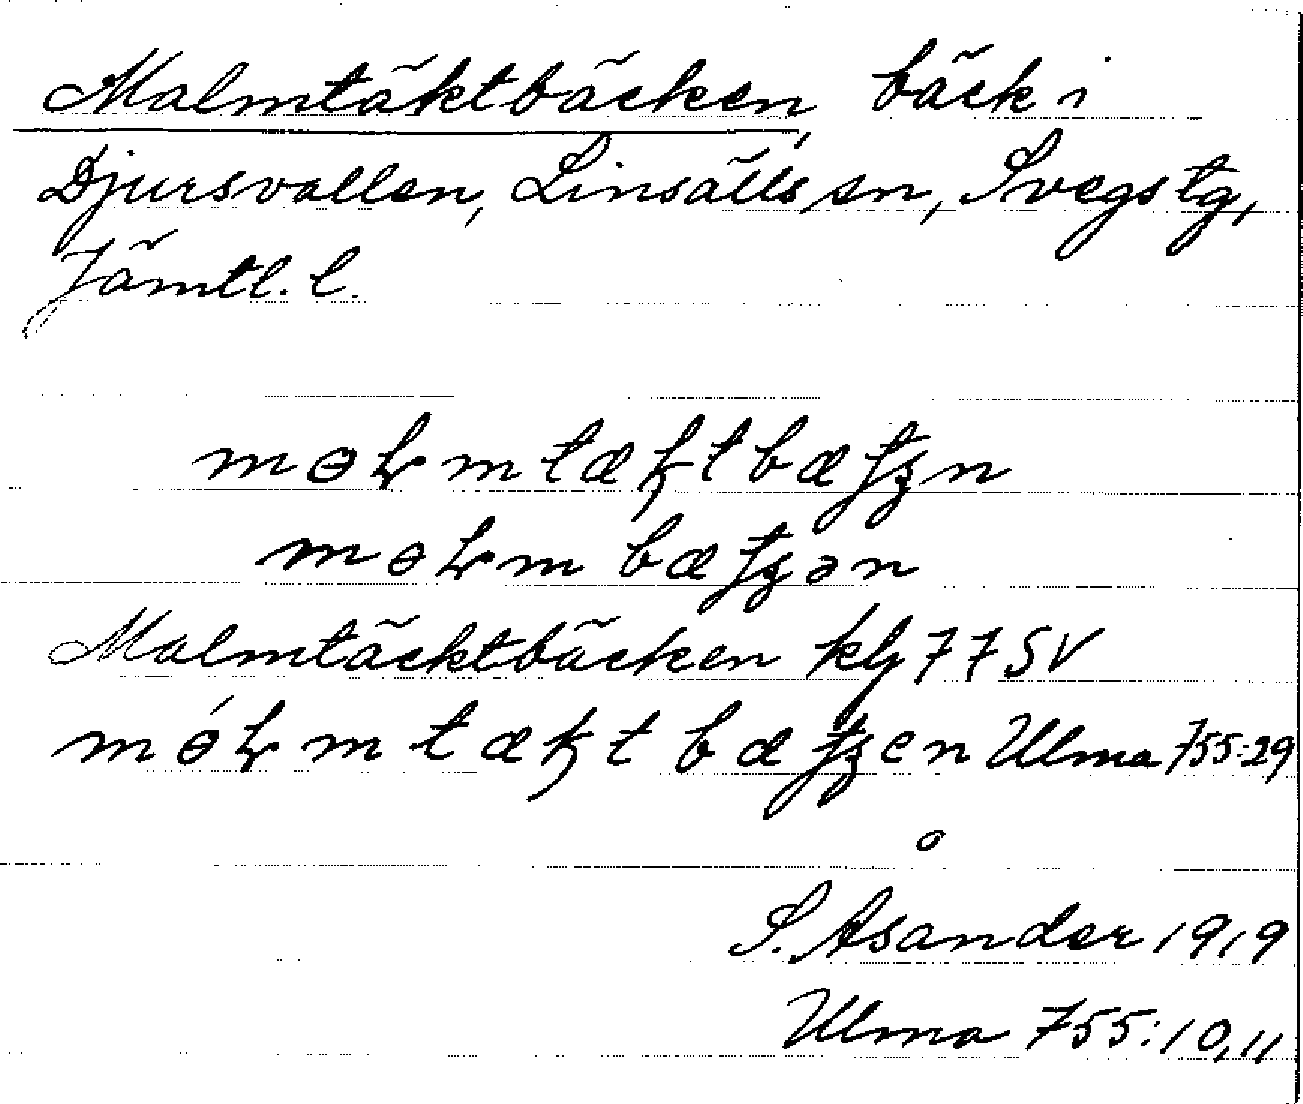 Malmtäktbäcken, bäck i
Djursvallen, Linsälls sn, Svegs tg,
Jämtl. l.
mɵⱡmtækt̡bæʈʂn
mɵⱡmbæʈʂən
Malmtäcktbäcken kbl 77 SV
mɵ́ⱡmtæktbæʈʂen Ulma 755:29
S. Åsander 1919
Ulma 755:10,11